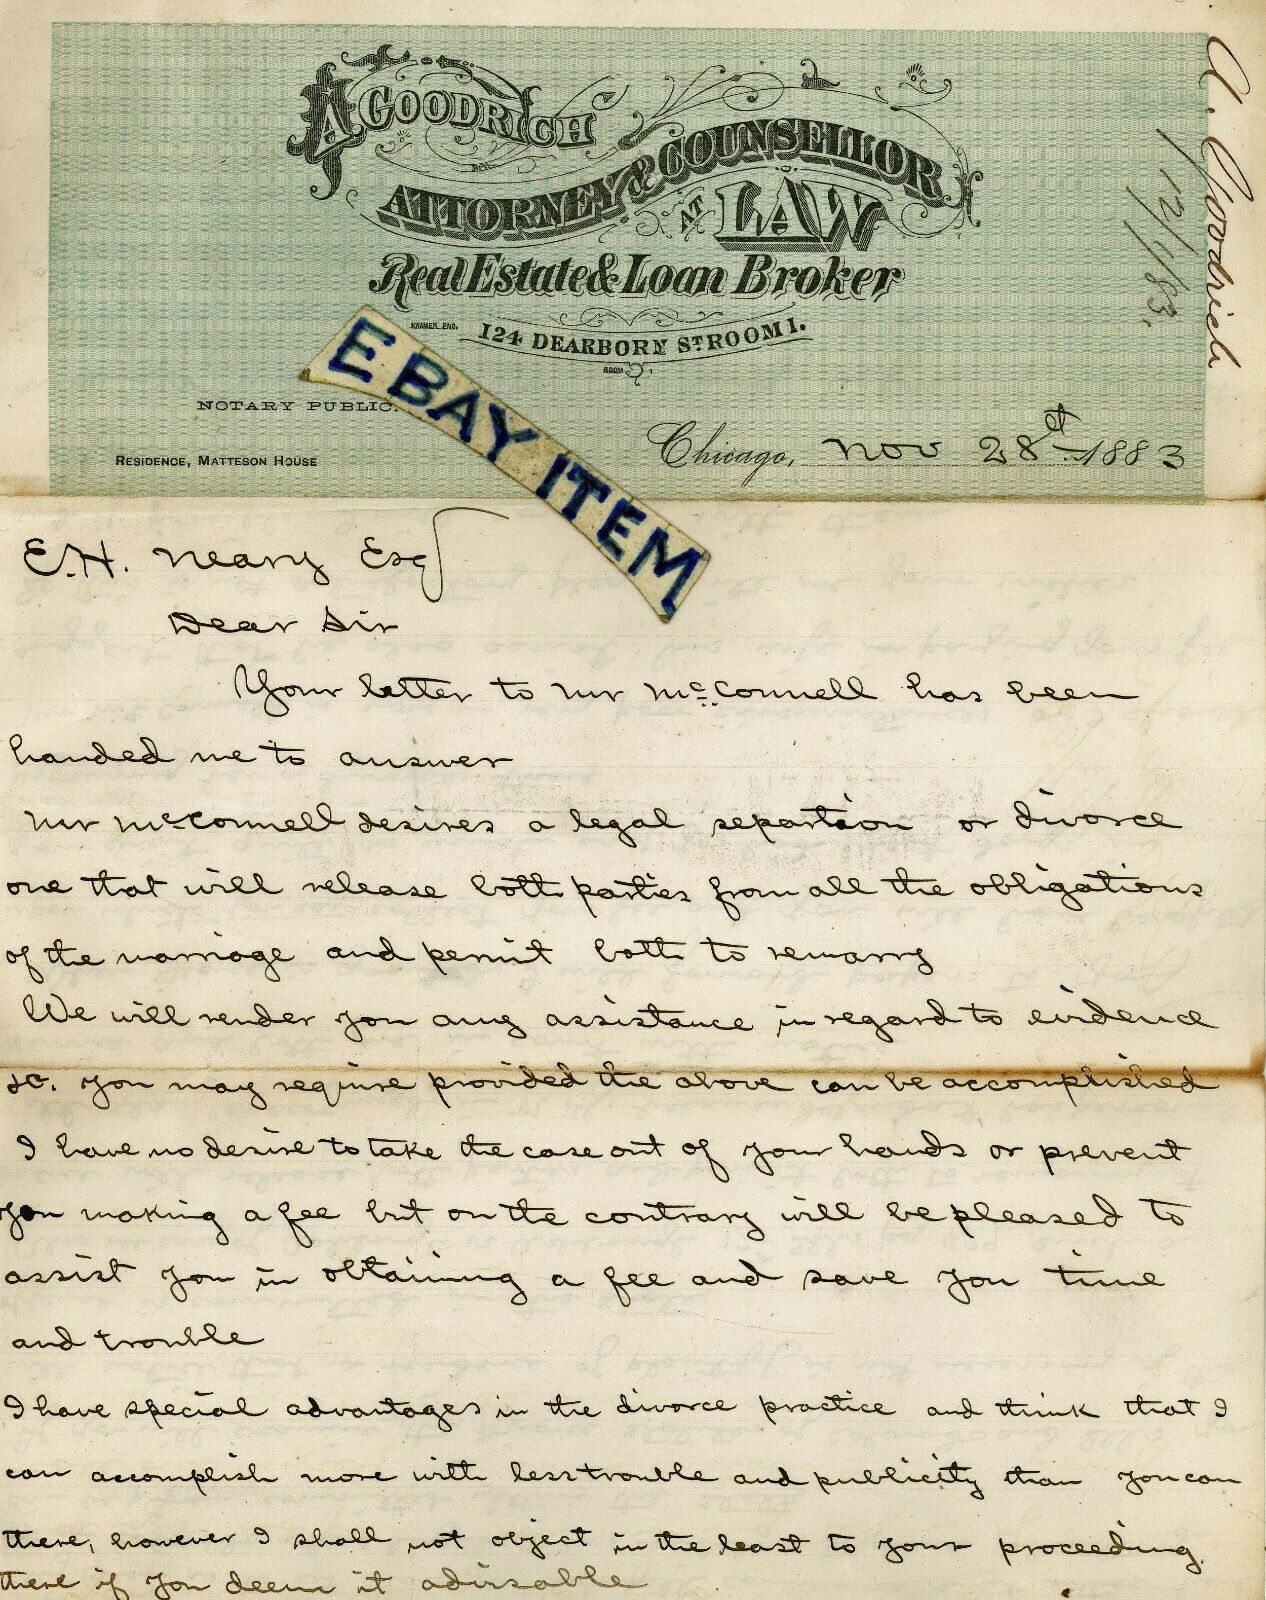 A. GOODRICH
ATTORNEY & COUNSELLOR
AT LAW
Real Estate & Loan Broker
KRAMER. ENG.
124 DEARBORN ST. ROOM 1.
ROOM 1
NOTARY PUBLIC.
RESIDENCE, MATTESON HOUSE
Chicago, Nov 28st 1883
A. Goodrich
12/1/83.
EBAY ITEM
E.H. Neary Esq
Dear Sir
Your letter to Mr McConnell has been
handed me to answer
Mr McConnell desires a legal separtion or divorce
one that will release both parties from all the obligations
of the marriage and permit both to remarry
We will render you any assistance in regard to evidence
&c. you may require provided the above can be accomplished
I have no desire to take the case out of your hands or prevent
you making a fee but on the contrary will be pleased to
assist you in obtaining a fee and save you time
and trouble
I have special advantages in the divorce practice and think that I
can accomplish more with less trouble and publicity than you can
there, however I shall not object in the least to your proceeding
there if you deem it advisable